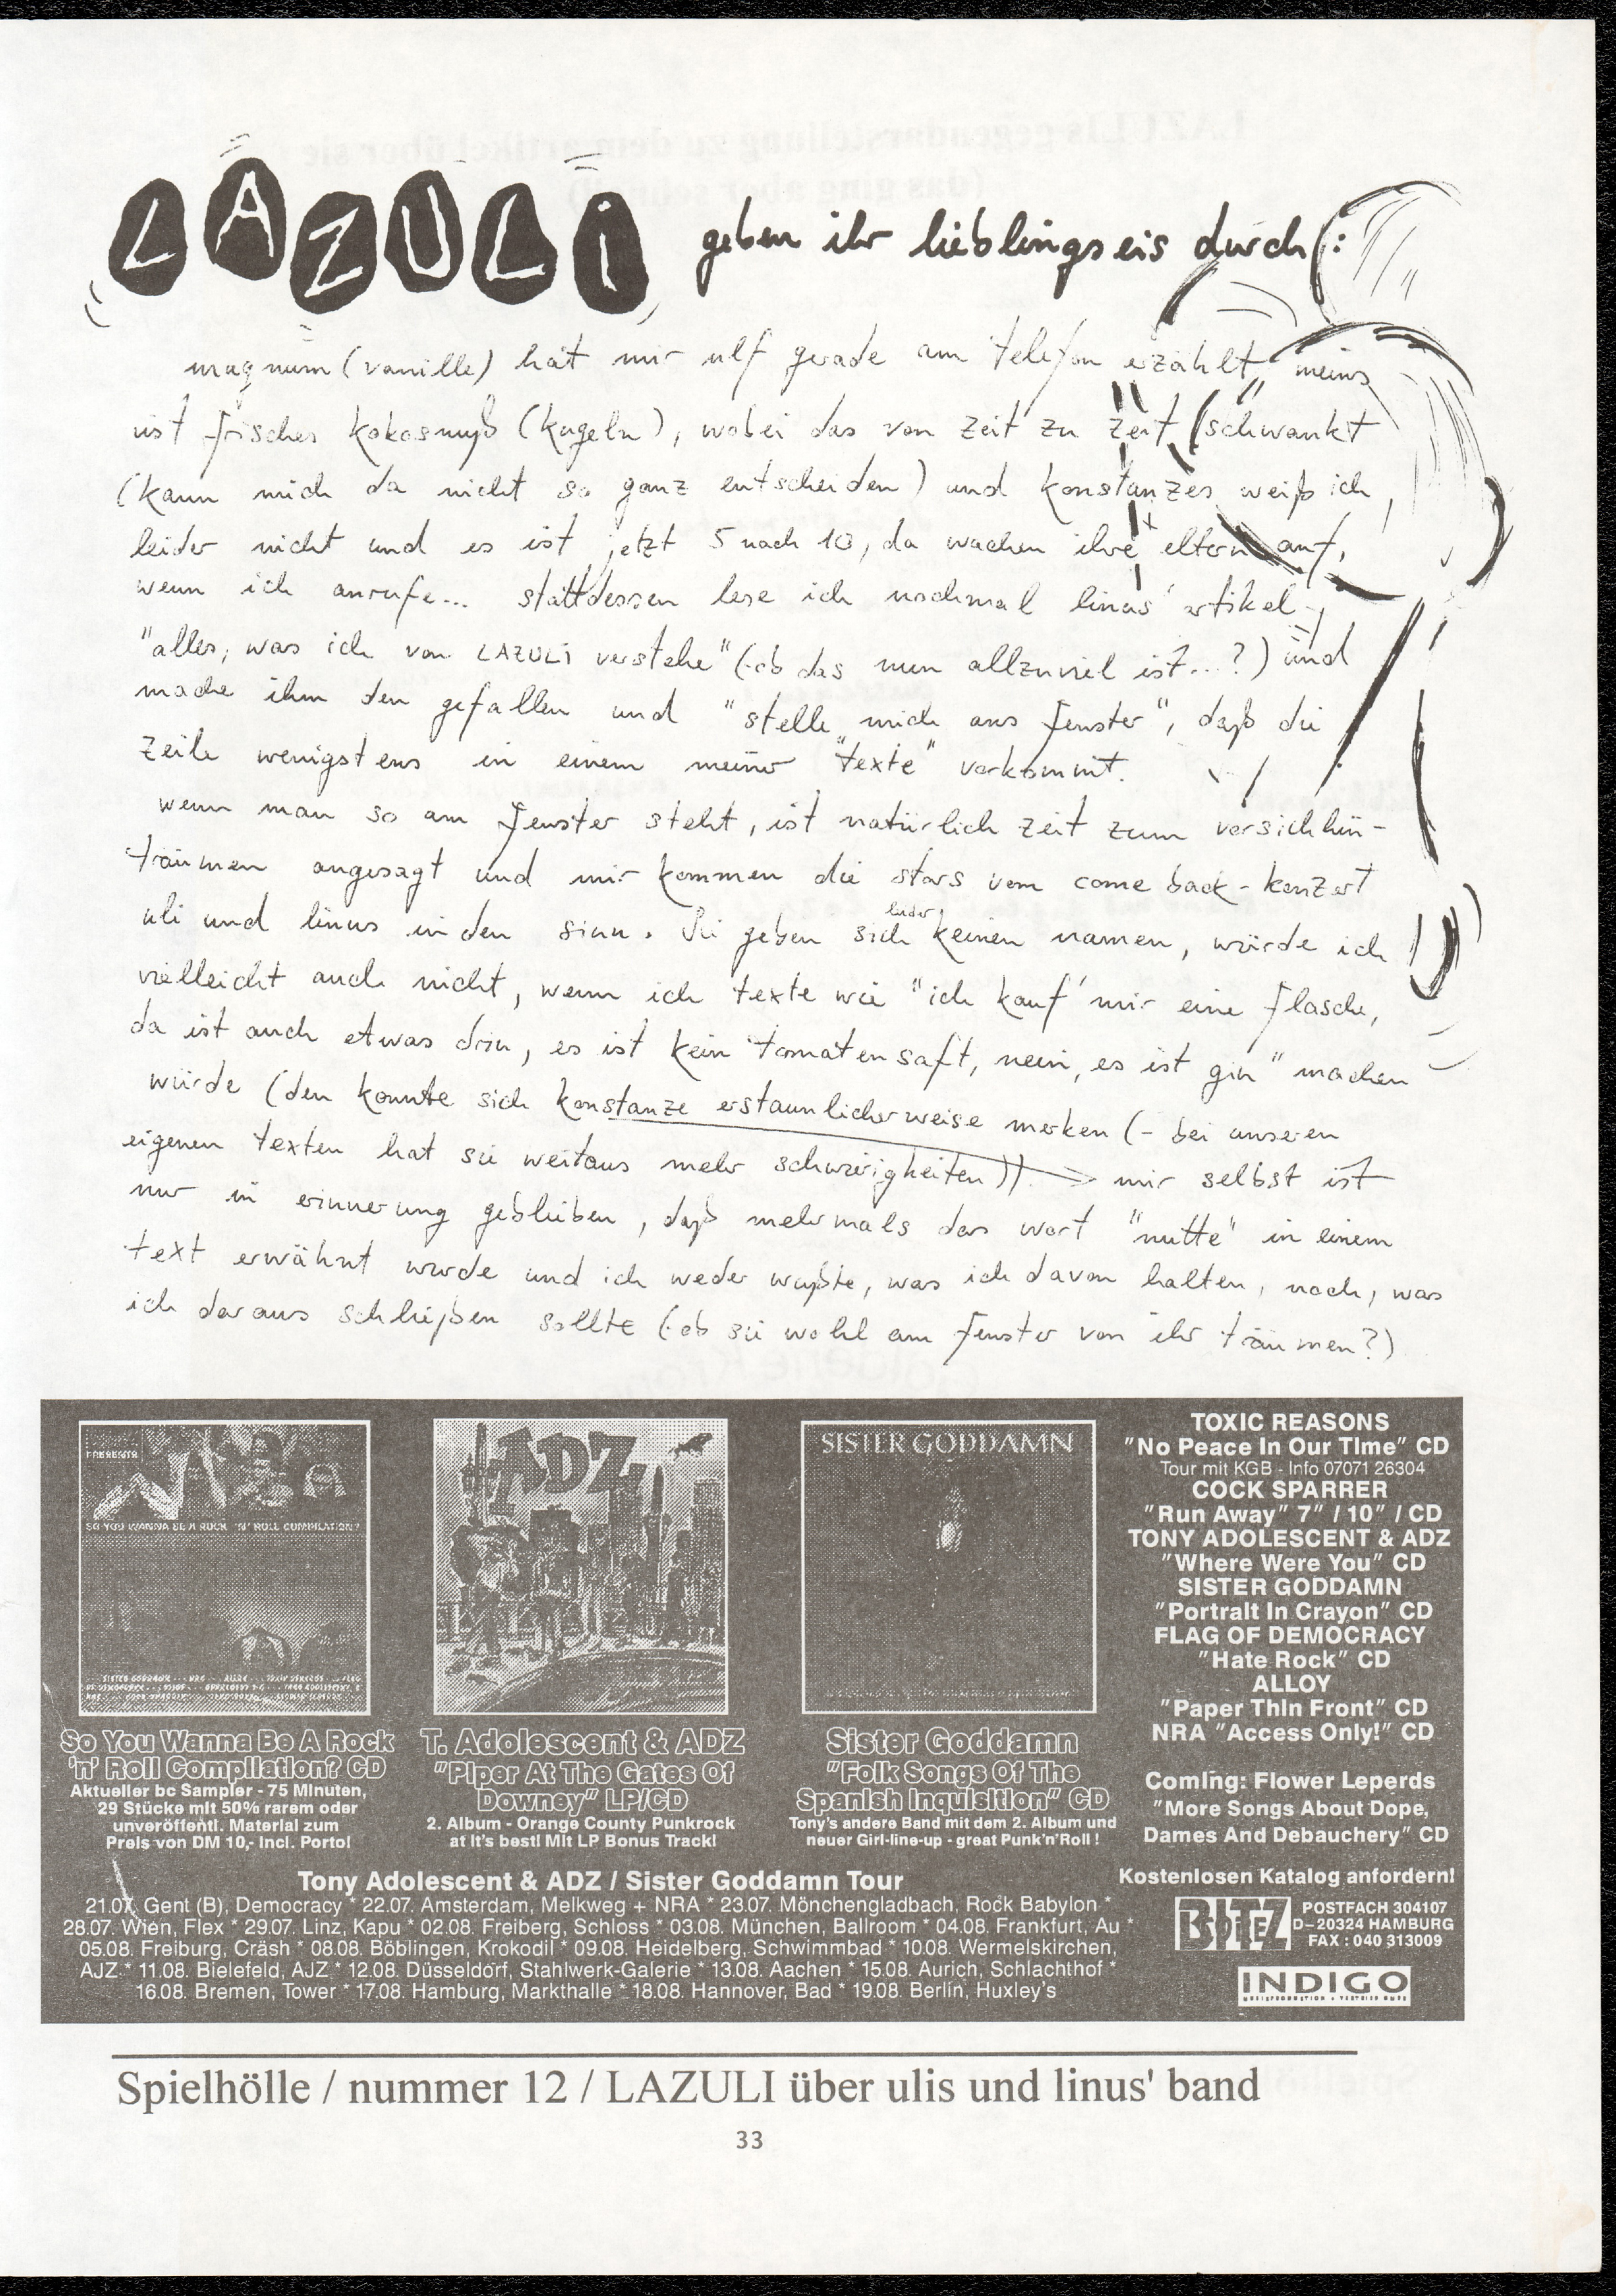 LAZULI geben ihr lieblingseis durch:
magnum (vanille) hat mir ulf gerade am telefon erzählt, meins
ist frisches kokosnuß (kugeln), wobei das von zeit zu zeit schwankt
(kann mich da nicht so ganz entscheiden) und konstanzes weiß ich
leider nicht und es ist jetzt 5 nach 10, da wachen ihre eltern auf,
wenn ich anrufe... stattdessen lese ich nochmal linus' artikel
"alles, was ich von LAZULI verstehe" (ob das nun allzuviel ist...?) und
mache ihm den gefallen und "stelle mich ans fenster", daß die
zeile wenigstens in einem meiner "texte" vorkommt.
wenn man so am fenster steht, ist natürlich zeit zum vorsichhin-
träumen angesagt und mir kommen die stars vom come back-konzert
uli und linus in den sinn. Sie geben sich leider keinen namen, würde ich
vielleicht auch nicht, wenn ich texte wie "ich kauf' mir eine flasche,
da ist auch etwas drin, es ist kein tomatensaft, nein, es ist gin" machen
würde (den konnte sich konstanze erstaunlicherweise merken (- bei unseren
eigenen texten hat sie weitaus mehr schwierigkeiten)) → mir selbst ist
nur in erinnerung geblieben, daß mehrmals das wort "nutte" in einem
text erwähnt wurde und ich weder wußte, was ich davon halten, noch, was
ich daraus schließen sollte (ob sie wohl am fenster von ihr träumen?)
PRESENTS
SO YOU WANNA BE A ROCK 'N' ROLL COMPILATION?
ADZ
SISTER GODDAMN
So You Wanna Be A Rock
'n' Roll Compilation? CD
Aktueller bc Sampler - 75 Minuten,
29 Stücke mit 50% rarem oder
unveröffentl. Material zum
Preis von DM 10,- incl. Porto!
T. Adolescent & ADZ
"Piper At The Gates Of
Downey" LP/CD
2. Album - Orange County Punkrock
at it's best! Mit LP Bonus Track!
Sister Goddamn
"Folk Songs Of The
Spanish Inquisition" CD
Tony's andere Band mit dem 2. Album und
neuer Girl-line-up - great Punk'n'Roll !
TOXIC REASONS
"No Peace In Our Time" CD
Tour mit KGB - Info 07071 26304
COCK SPARRER
"Run Away" 7" / 10" / CD
TONY ADOLESCENT & ADZ
"Where Were You" CD
SISTER GODDAMN
"Portrait In Crayon" CD
FLAG OF DEMOCRACY
"Hate Rock" CD
ALLOY
"Paper Thin Front" CD
NRA "Access Only!" CD
Coming: Flower Leperds
"More Songs About Dope,
Dames And Debauchery" CD
Tony Adolescent & ADZ / Sister Goddamn Tour
21.07. Gent (B), Democracy * 22.07. Amsterdam, Melkweg + NRA * 23.07. Mönchengladbach, Rock Babylon *
28.07. Wien, Flex * 29.07. Linz, Kapu * 02.08. Freiberg, Schloss * 03.08. München, Ballroom * 04.08. Frankfurt, Au *
05.08. Freiburg, Cräsh * 08.08. Böblingen, Krokodil * 09.08. Heidelberg, Schwimmbad * 10.08. Wermelskirchen,
AJZ * 11.08. Bielefeld, AJZ * 12.08. Düsseldorf, Stahlwerk-Galerie * 13.08. Aachen * 15.08. Aurich, Schlachthof *
16.08. Bremen, Tower * 17.08. Hamburg, Markthalle * 18.08. Hannover, Bad * 19.08. Berlin, Huxley's
Kostenlosen Katalog anfordern!
POSTFACH 304107
D-20324 HAMBURG
FAX : 040 313009
INDIGO
Spielhölle / nummer 12 / LAZULI über ulis und linus' band
33